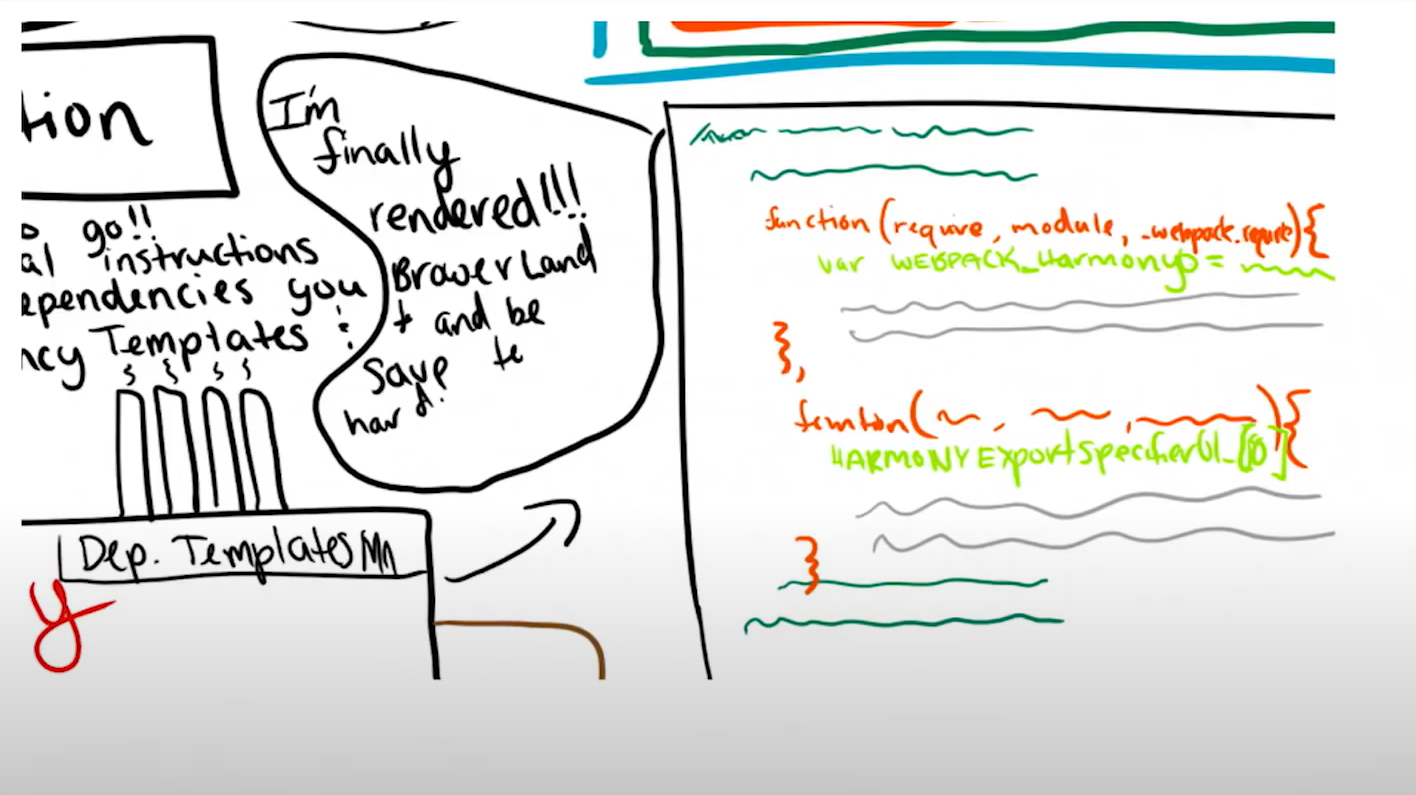 tion
go!!
al instructions
ependencies you
ncy Templates :
Dep. Templates
I'm
finally
rendered!!!
Brower Land
+ and be
Save to
hard.
function (require, module, _webpack.require){
var WEBPACK_Harmony =
},
function( , , ){
HARMONY Export Specifier
}